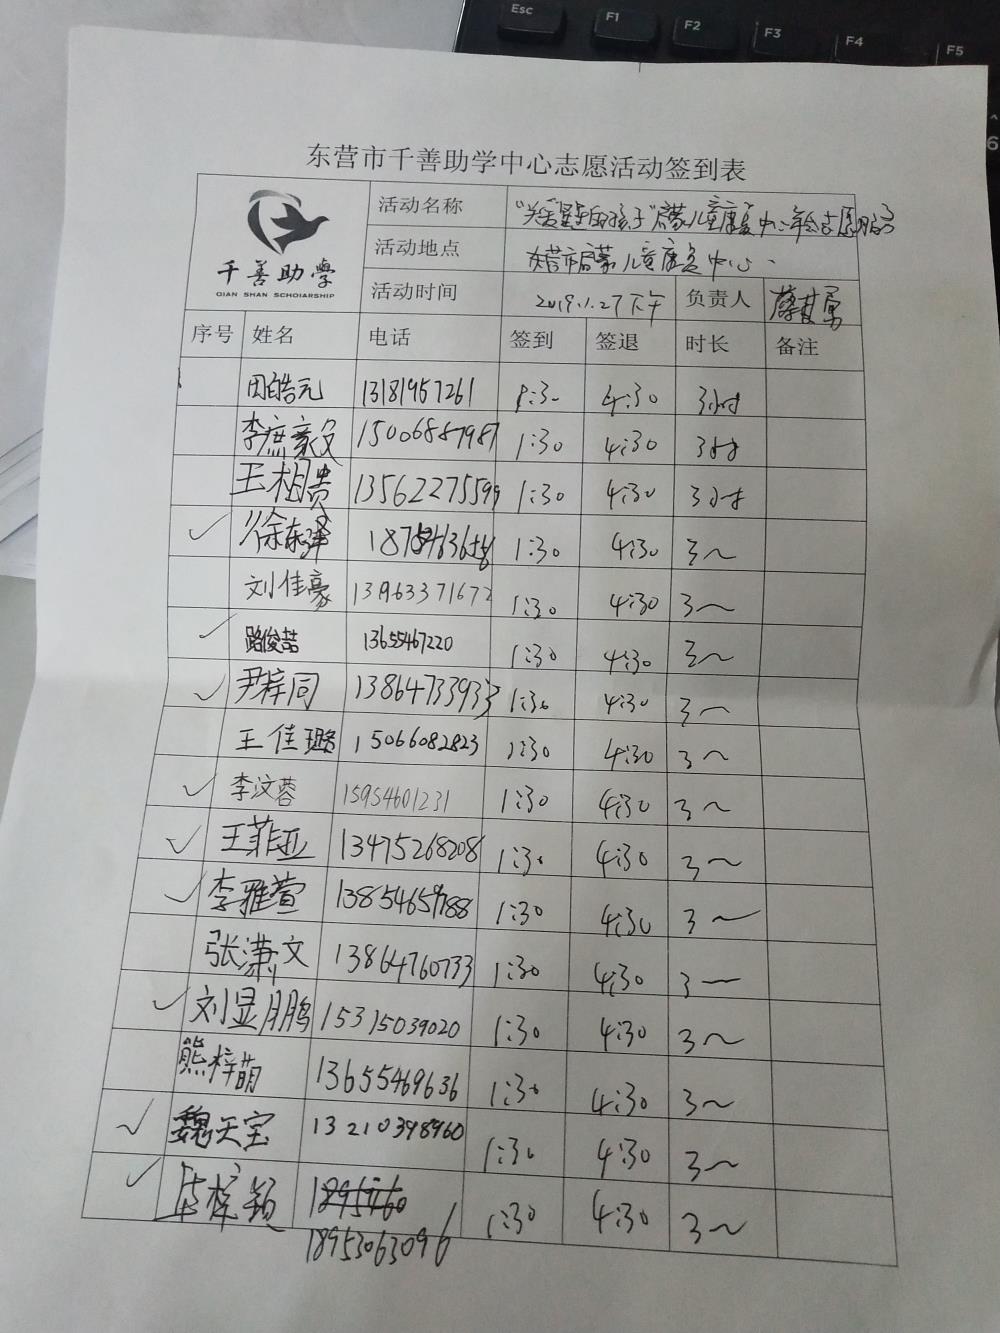 Esc F1 F2 F3 F4 F5
6
东营市千善助学中心志愿活动签到表
千善助學
QIAN SHAN SCHOIARSHIP
活动名称 "关爱星星的孩子"启蒙儿童康复中心年会志愿服务
活动地点 东营市启蒙儿童康复中心
活动时间 2019.1.27下午 负责人
序号 姓名 电话 签到 签退 时长 备注
田皓元 13181957261 1:30 4:30 3小时
李庶豪 15006887987 1:30 4:30 3小时
王相贵 13562275599 1:30 4:30 3小时
✓ 徐东泽 1:30 4:30 3~
刘佳豪 13963371672 1:30 4:30 3~
✓ 路俊喆 13655467220 1:30 4:30 3~
✓ 尹梓同 13864733933 1:30 4:30 3~
王佳璐 15066082823 1:30 4:30 3~
✓ 李汶蓉 15954601231 1:30 4:30 3~
✓ 王菲亚 13475268208 1:30 4:30 3~
✓ 李雅萱 13854659188 1:30 4:30 3~
张潇文 13864760733 1:30 4:30 3~
✓ 刘显鹏 15315039020 1:30 4:30 3~
熊梓萌 13655469636 1:30 4:30 3~
✓ 魏天宝 13210398960 1:30 4:30 3~
✓ 1:30 4:30 3~
18953063096